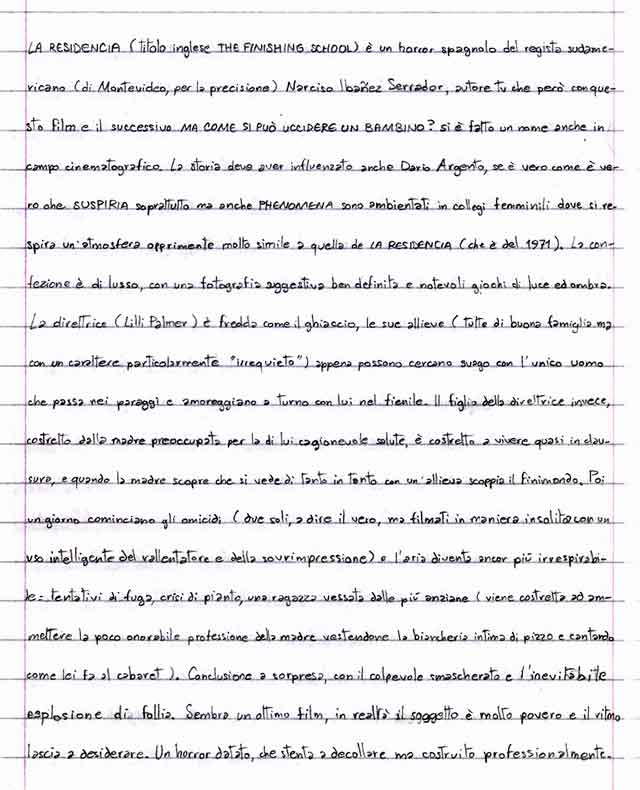 LA RESIDENCIA (titolo inglese THE FINISHING SCHOOL) è un horror spagnolo del regista sudame-
ricano (di Montevideo, per la precisione) Narciso Ibañez Serrador, autore tv che però con que-
sto film e il successivo MA COME SI PUÒ UCCIDERE UN BAMBINO? si è fatto un nome anche in
campo cinematografico. La storia deve aver influenzato anche Dario Argento, se è vero come è ve-
ro che SUSPIRIA soprattutto ma anche PHENOMENA sono ambientati in collegi femminili dove si re-
spira un'atmosfera opprimente molto simile a quella de LA RESIDENCIA (che è del 1971). La con-
fezione è di lusso, con una fotografia suggestiva ben definita e notevoli giochi di luce ed ombra.
La direttrice (Lilli Palmer) è fredda come il ghiaccio, le sue allieve (tutte di buona famiglia ma
con un carattere particolarmente "irrequieto") appena possono cercano svago con l'unico uomo
che passa nei paraggi e amoreggiano a turno con lui nel fienile. Il figlio della direttrice invece,
costretto dalla madre preoccupata per la di lui cagionevole salute, è costretto a vivere quasi in clau-
sura, e quando la madre scopre che si vede di tanto in tanto con un'allieva scoppia il finimondo. Poi
un giorno cominciano gli omicidi (due soli, a dire il vero, ma filmati in maniera insolita con un
uso intelligente del rallentatore e della sovrimpressione) e l'aria diventa ancor più irrespirabi-
le: tentativi di fuga, crisi di pianto, una ragazza vessata dalle più anziane (viene costretta ad am-
mettere la poco onorabile professione della madre vestendone la biancheria intima di pizzo e cantando
come lei fa al cabaret). Conclusione a sorpresa, con il colpevole smascherato e l'inevitabile
esplosione di follia. Sembra un ottimo film, in realtà il soggetto è molto povero e il ritmo
lascia a desiderare. Un horror datato, che stenta a decollare ma costruito professionalmente.